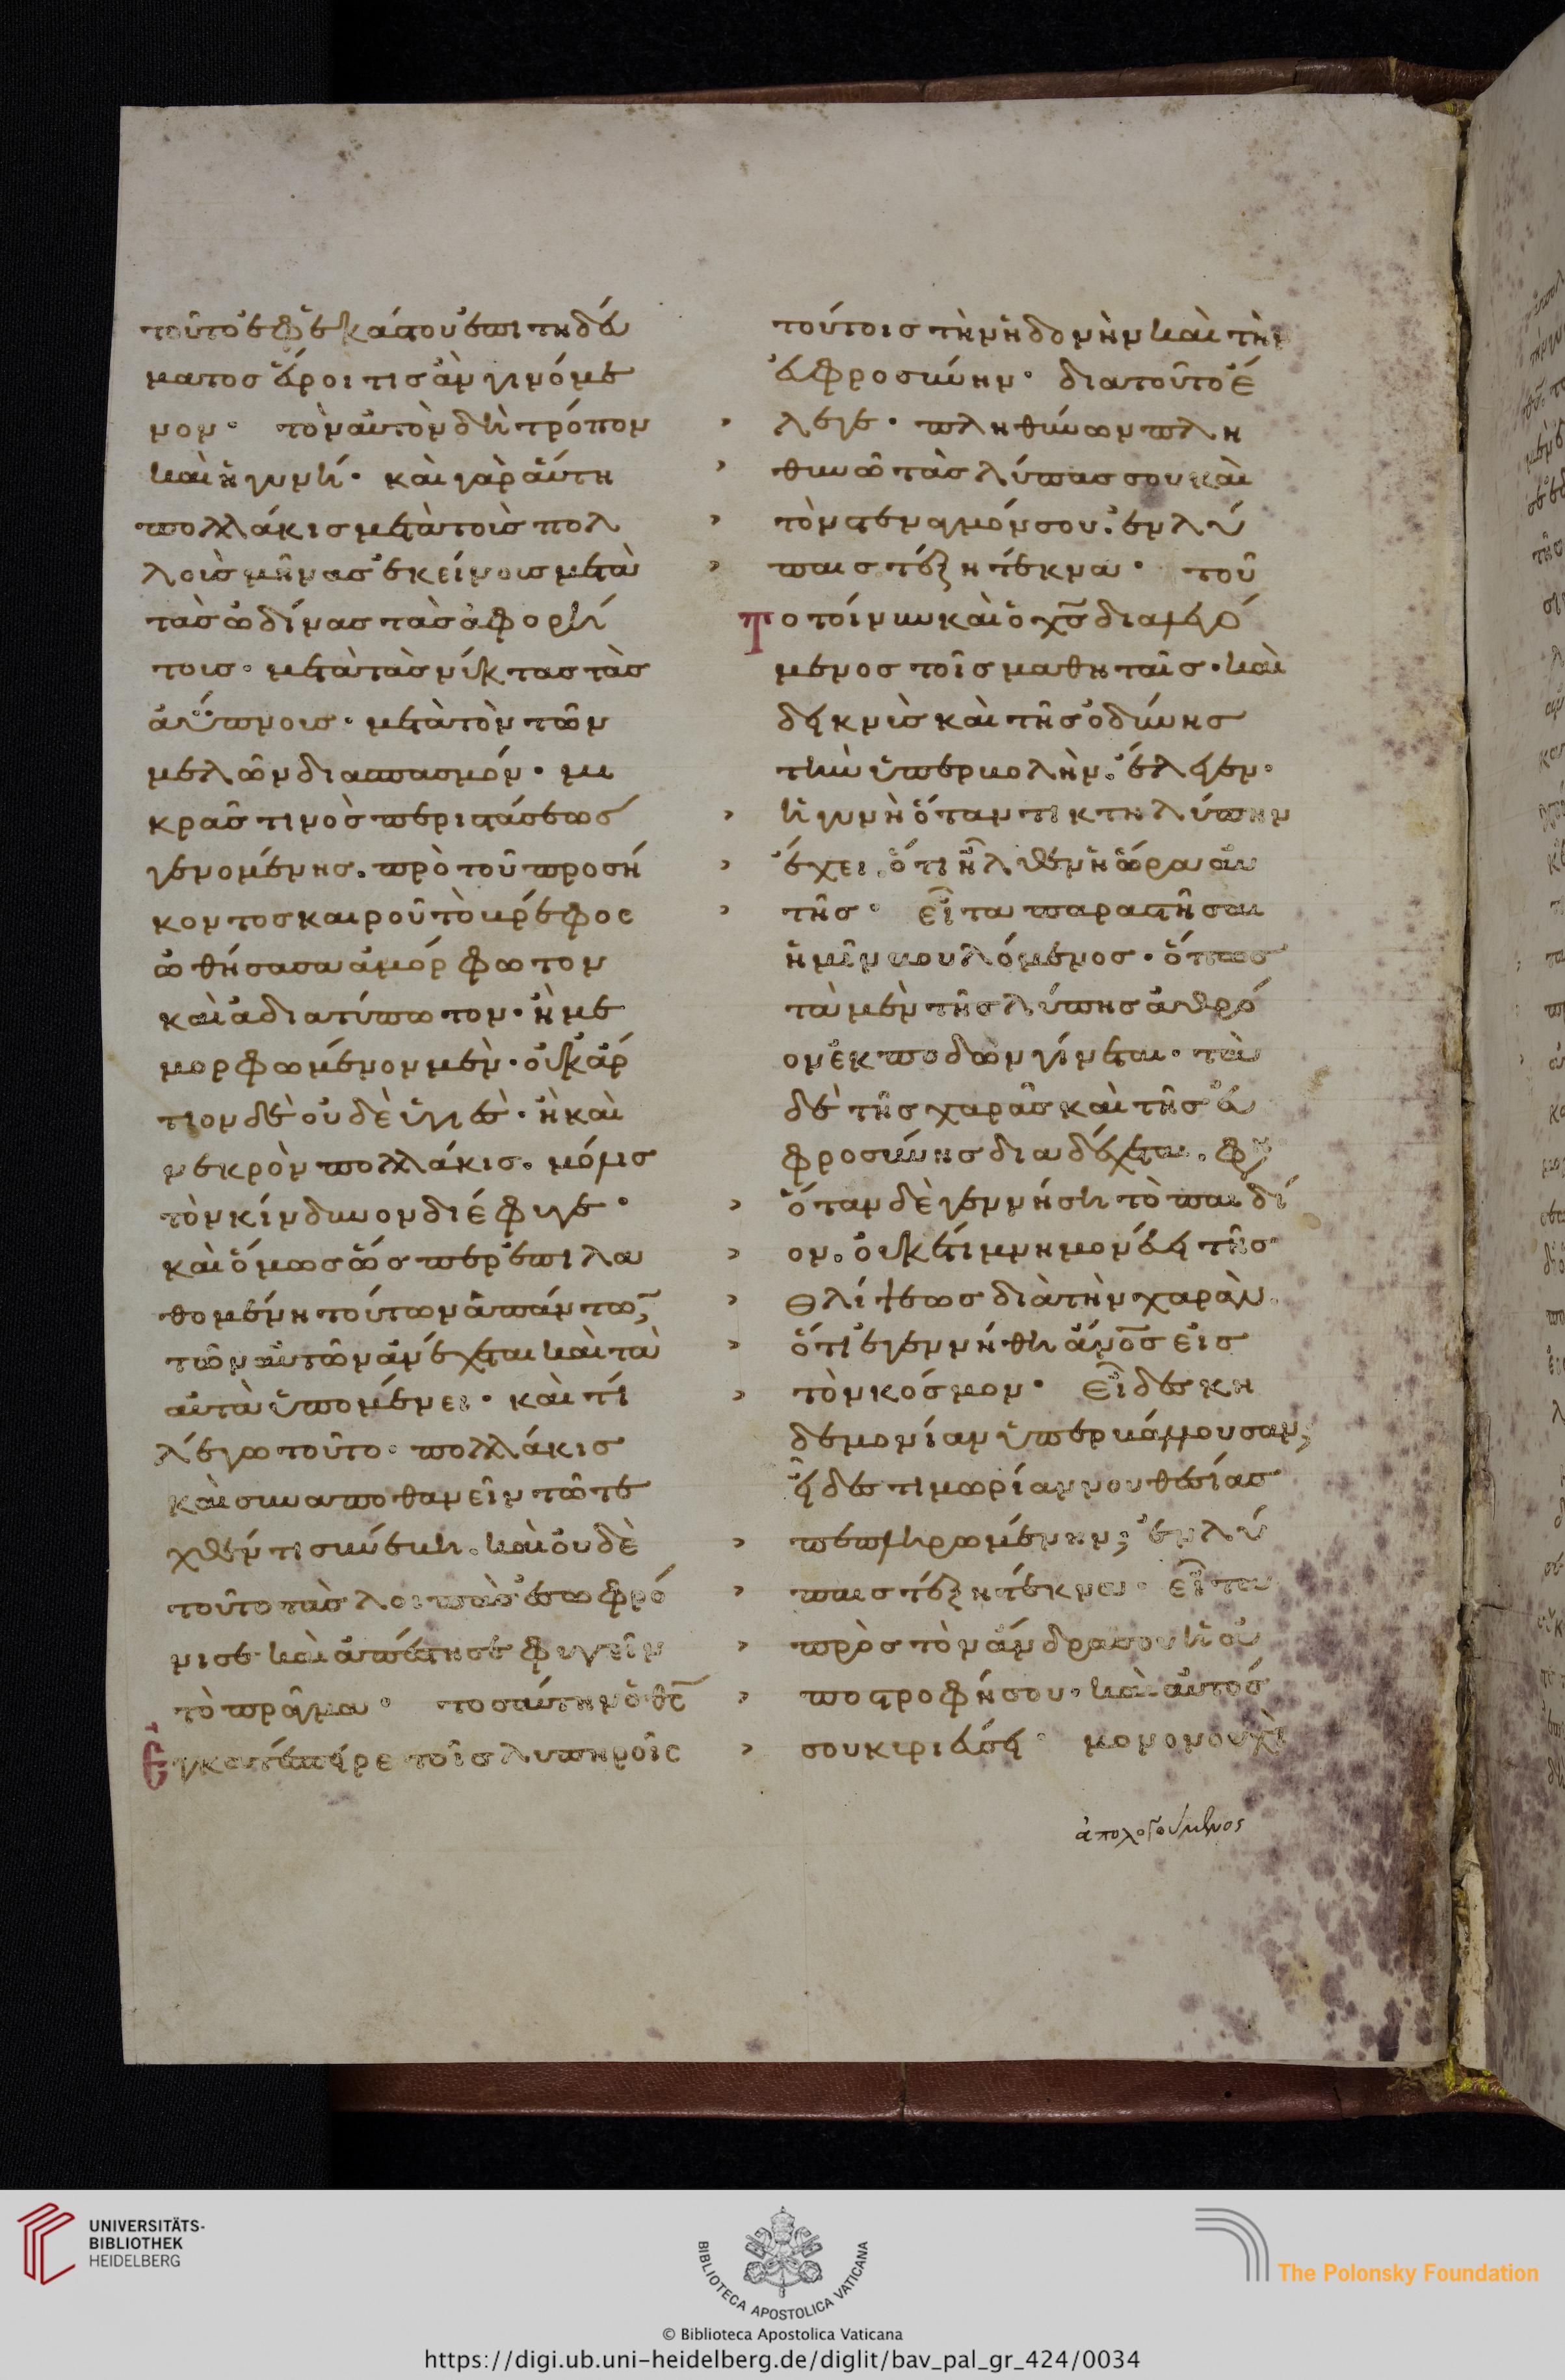 τοῦτο ἐφ ἑκάστου ἐπιτηδεύ
ματος εὕροι τις ἂν γινόμε
νον· τὸν αὐτὸν δὴ τρόπον
καὶ ἡ γυνή· καὶ γὰρ αὕτη
πολλάκις μετὰ τοὺς πολ
λοὺς μῆνας ἐκείνους μετὰ
τὰς ὠδίνας τὰς ἀφορή
τους· μετὰ τὰς νύκτας τὰς
ἀΰπνους· μετὰ τὸν τῶν
μελῶν διασπασμόν· μι
κρᾶς τινος περιστάσεως
γενομένης. πρὸ τοῦ προσή
κοντος καιροῦ τὸ βρέφος
ὠθήσασα ἀμόρφωτον
καὶ ἀδιατύπωτον· ἢ με
μορφωμένον μὲν· οὐκ ἄρ
τιον δὲ οὐδὲ ὑγιὲς· ἢ καὶ
νεκρὸν πολλάκις. μόλις
τὸν κίνδυνον διέφυγε·
καὶ ὅμως ὥσπερ ἐπιλα
θομένη τούτων ἁπάντω̅
τῶν αὐτῶν ἀνέχεται καὶ τὰ
αὐτὰ ὑπομένει· καὶ τί
λέγω τοῦτο· πολλάκις
καὶ συναποθανεῖν τῶ τε
χθέντι συνέβη. καὶ οὐδὲ
τοῦτο τὰς λοιπὰς ἐσωφρό
νισε καὶ ἀπέστησε φυγεῖν
τὸ πρᾶγμα· τοσαύτην ὁ θς̅
ἐγκατέσπειρε τοῖς λυπηροῖς
τούτοις τὴν ἡδονὴν καὶ τὴν
εὐφροσύνην· διατοῦτο ἔ
› λεγε· πληθύνων πλη
› θυνῶ τὰς λύπας σου καὶ
› τὸν στεναγμόν σου. ἐν λύ
› παις τέξη τέκνα· τοῦ
το τοίνυν καὶ ὁ χς̅ διαλεγό
μενος τοῖς μαθηταῖς· καὶ
δεικνὺς καὶ τῆς ὀδύνης
τὴν ὑπερβολὴν. ἔλεγεν·
› ἡ γυνὴ ὅταν τίκτη λύπην
› ἔχει. ὅτι ἦλθεν ἡ ὥρα αὐ
› τῆς· εἶτα παραστῆσαι
ἡμῖν βουλόμενος· ὅπως
τὰ μὲν τῆς λύπης ἀνθρώ
ον ἐκποδὼν γίνεται· τὰ
δὲ τῆς χαρᾶς καὶ τῆς εὐ
φροσύνης διαδέχεται. φη
› ὅταν δὲ γεννήση τὸ παιδί
› ον. οὐκέτι μνημονεύει τῆς
› θλίψεως διὰ τὴν χαρὰν.
› ὅτι ἐγεννήθη ἄνος̅ εἰς
› τὸν κόσμον· εἶδες κη
δεμονίαν ὑπερβάλλουσαν;
εἶδες τιμωρίαν νουθεσίας
› πεπληρωμένην; ἐν λύ
› παις τέξη τέκνα· εἶτα
› πρὸς τὸν ἄνδρα σου ἡ ἀ
› ποστροφή σου· καὶ αὐτός
› σου κυριεύσει· μονονουχὶ
ἀπολογούμενος
UNIVERSITÄTS-
BIBLIOTHEK
HEIDELBERG
BIBLIOTECA APOSTOLICA VATICANA
The Polonsky Foundation
© Biblioteca Apostolica Vaticana
https://digi.ub.uni-heidelberg.de/diglit/bav_pal_gr_424/0034